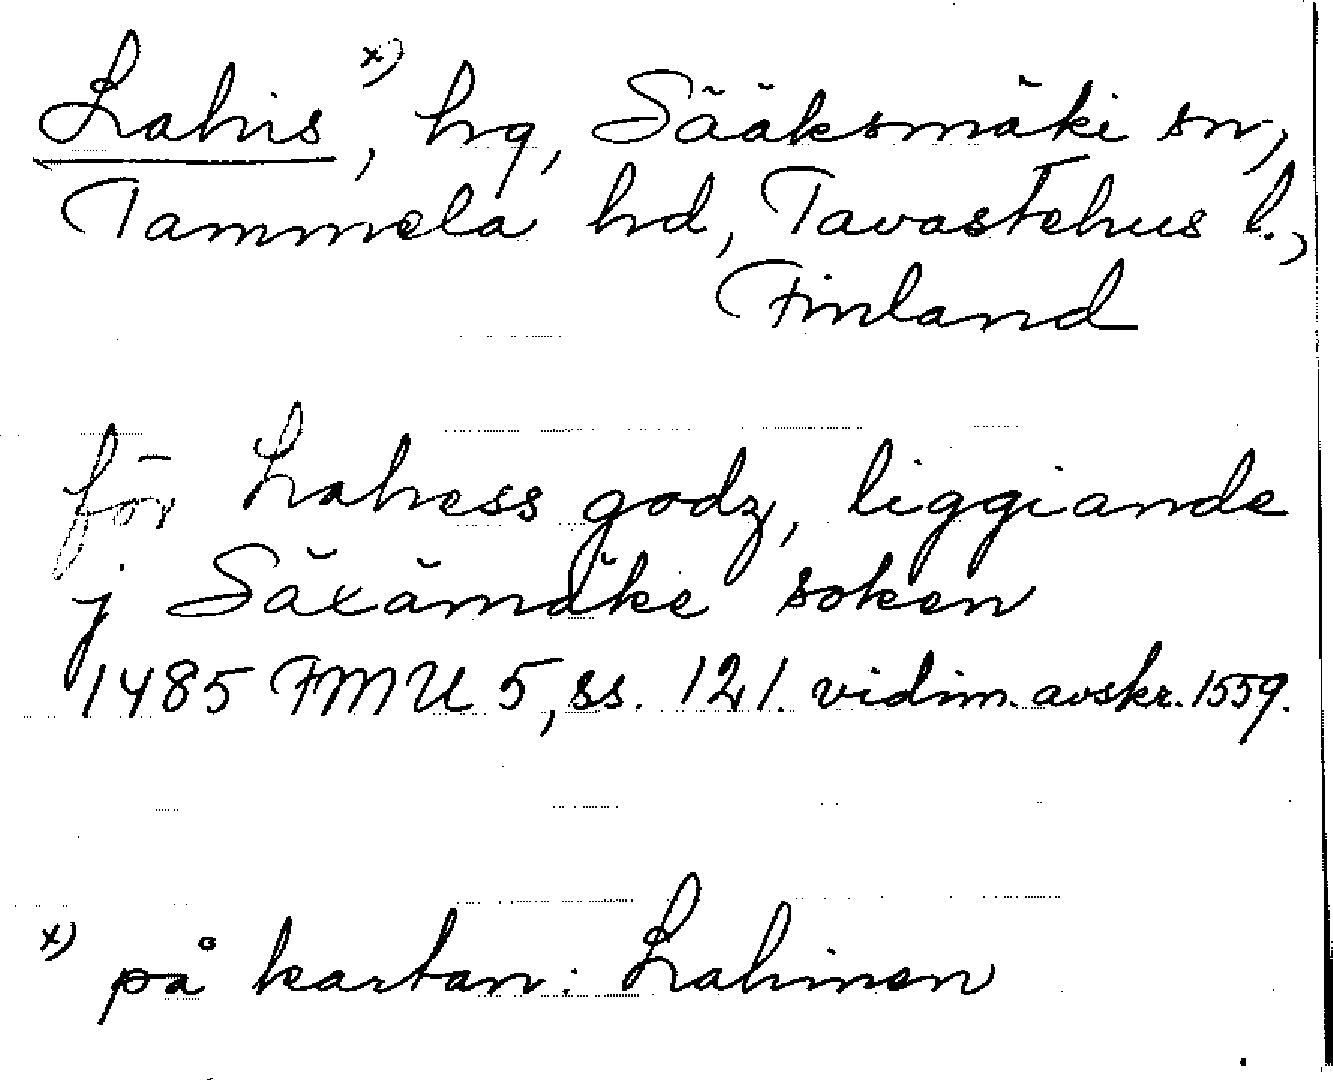 Lahis x), hg, Sääksmäki sn,
Tammela hd, Tavastehus l.,
Finland
för Lahess godz, liggiande
j Säxämäke soken
1485 FMU 5, ss. 121. vidim. avskr. 1559.
x) på kartan: Lahinen